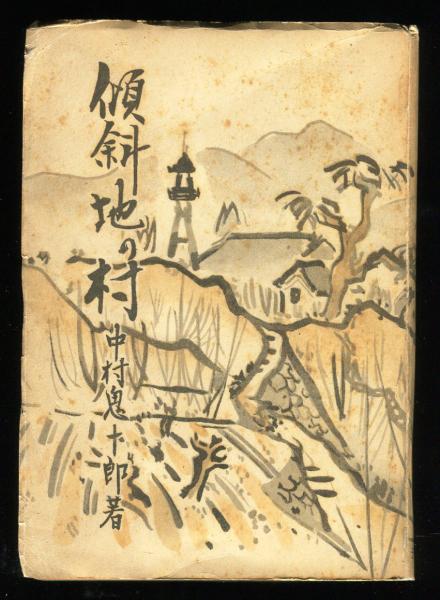 傾斜地の村
中村鬼十郎著